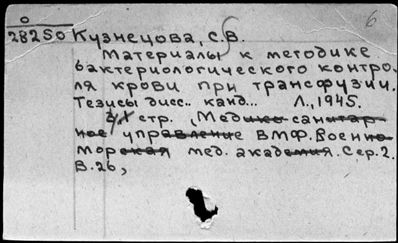 о 6
28250 Кузнецова, С.В.
Материалы к методике
бактериологического контро-
ля крови при трансфузии.
Тезисы дисс.. канд... Л., 1945.
стр. (Медико-санитар-
ное управление ВМФ. Военно-
морская мед. академия. Сер. 2.
В. 26,